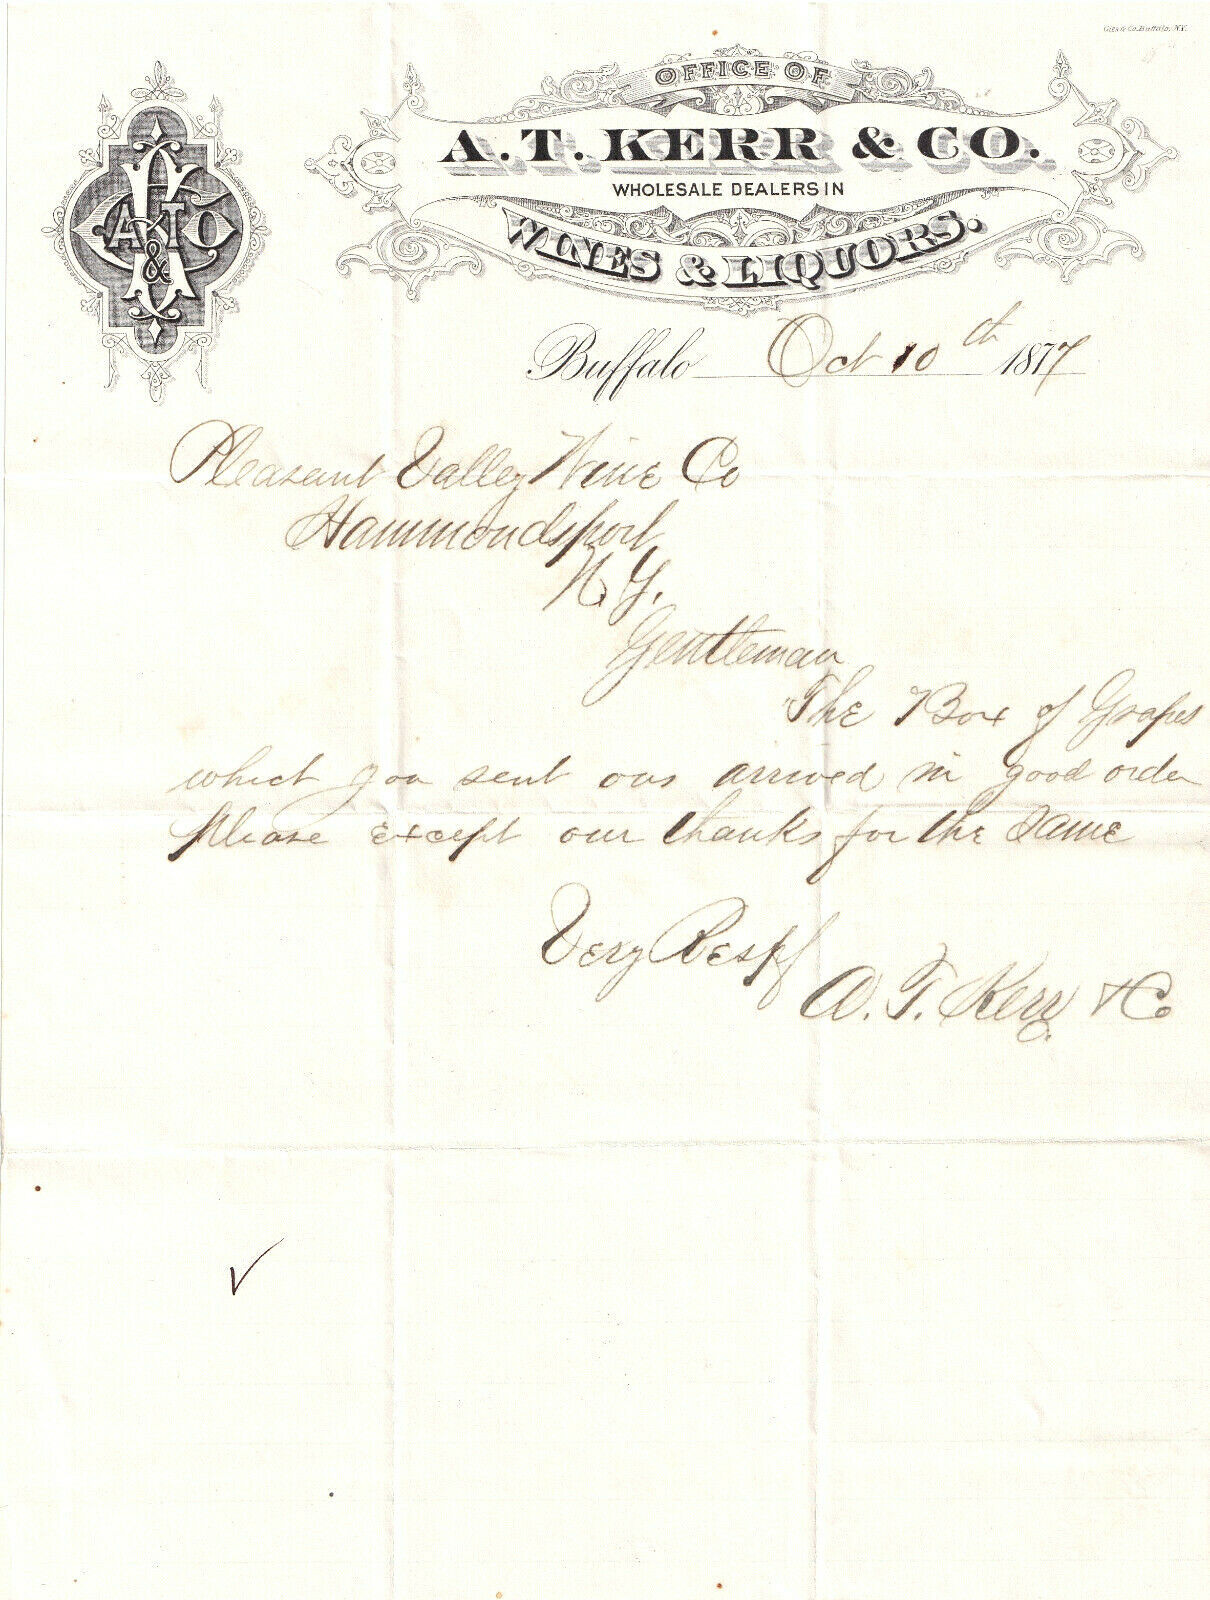 Gies & Co. Buffalo, N.Y.
OFFICE OF
A. T. KERR & CO.
WHOLESALE DEALERS IN
WINES & LIQUORS.
Buffalo Oct 10th 1877
Pleasant Valley Wine Co
Hammondsport
N. Y.
Gentleman
The Box of Grapes
which you sent ous arrived in good order
Please except our thanks for the Same
Very Respf
A. T. Kerr & Co